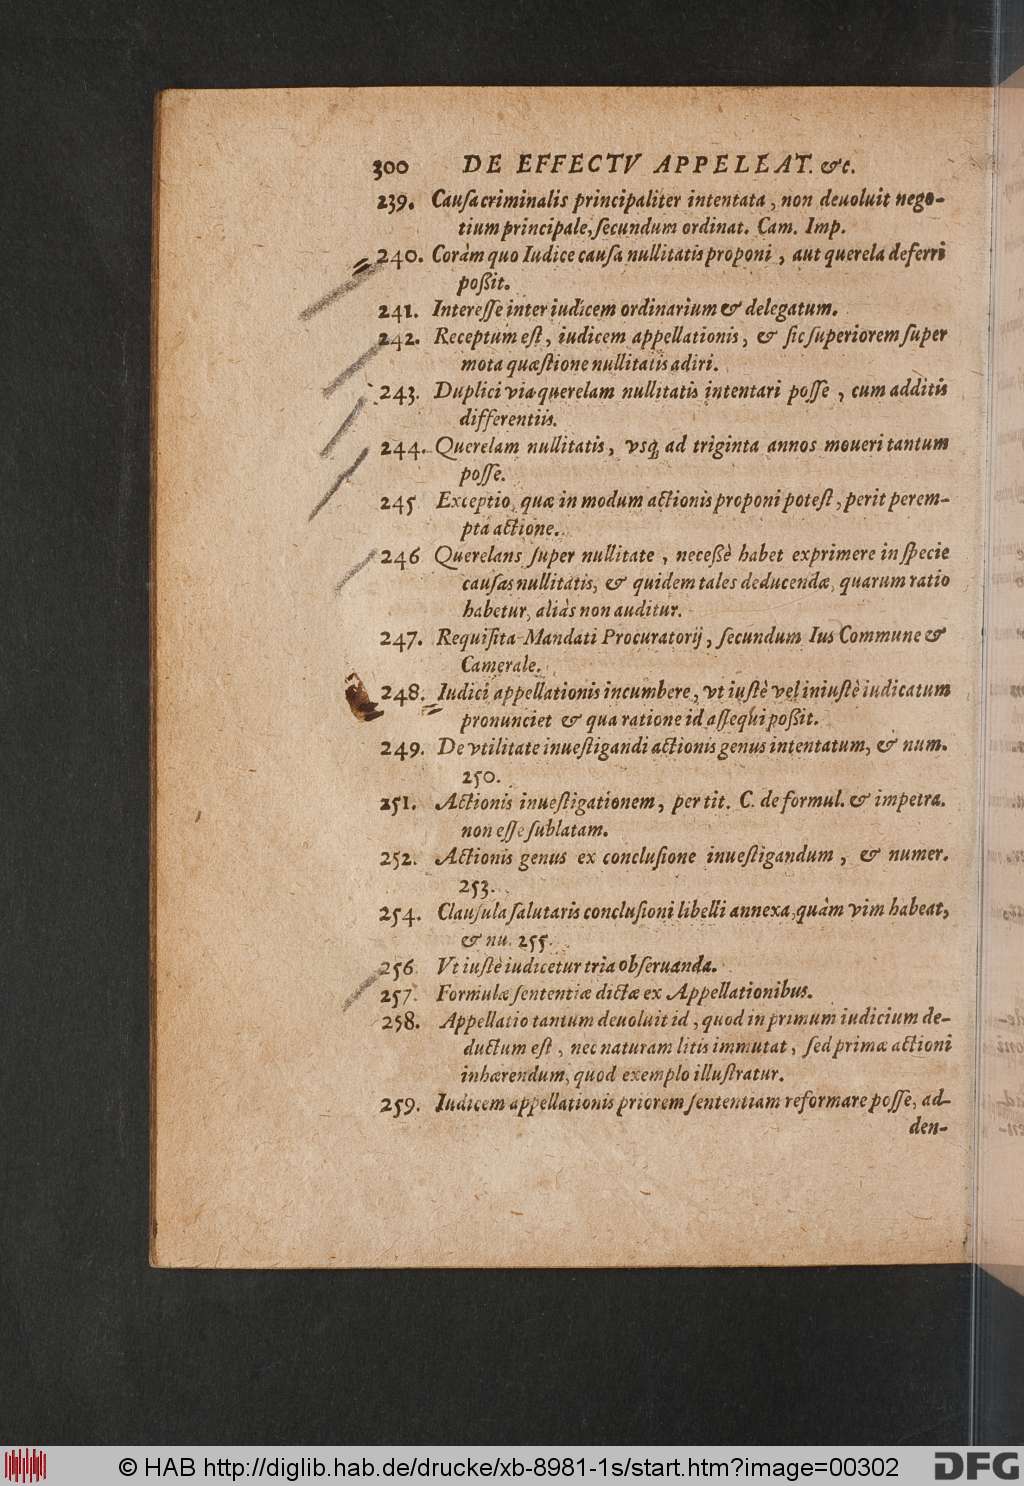 300 DE EFFECTV APPELLAT. &c.
239. Cauſa criminalis principaliter intentata, non deuoluit nego-
tium principale, ſecundum ordinat. Cam. Imp.
240. Coràm quo Iudice cauſa nullitatis proponi, aut querela deferri
poßit.
241. Intereſſe inter iudicem ordinarium & delegatum.
242. Receptum eſt, iudicem appellationis, & ſic ſuperiorem ſuper
mota quæſtione nullitatis adiri.
243. Duplici via querelam nullitatis intentari poſſe, cum additis
differentiis.
244. Querelam nullitatis, vsq; ad triginta annos moueri tantum
poſſe.
245 Exceptio, quæ in modum actionis proponi poteſt, perit perem-
pta actione.
246 Querelans ſuper nullitate, neceßè habet exprimere in ſpecie
cauſas nullitatis, & quidem tales deducendæ, quarum ratio
habetur, aliàs non auditur.
247. Requiſita Mandati Procuratorij, ſecundum Ius Commune &
Camerale.
248. Iudici appellationis incumbere, vt iuſtè vel iniuſtè iudicatum
pronunciet & qua ratione id aſſequi poßit.
249. De vtilitate inueſtigandi actionis genus intentatum, & num.
250.
251. Actionis inueſtigationem, per tit. C. de formul. & impetra.
non eſſe ſublatam.
252. Actionis genus ex concluſione inueſtigandum, & numer.
253.
254. Clauſula ſalutaris concluſioni libelli annexa, quàm vim habeat,
& nu. 255.
256. Vt iuſtè iudicetur tria obſeruanda.
257. Formulæ ſententiæ dictæ ex Appellationibus.
258. Appellatio tantum deuoluit id, quod in primum iudicium de-
ductum eſt, nec naturam litis immutat, ſed primæ actioni
inhærendum, quod exemplo illuſtratur.
259. Iudicem appellationis priorem ſententiam reformare poſſe, ad-
den-
© HAB http://diglib.hab.de/drucke/xb-8981-1s/start.htm?image=00302
DFG